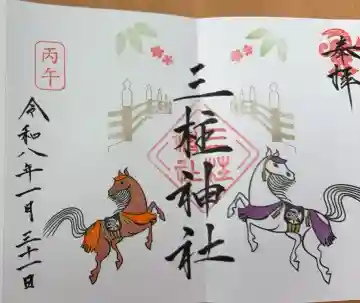 奉拝
三柱神社
令和八年一月三十一日
丙午